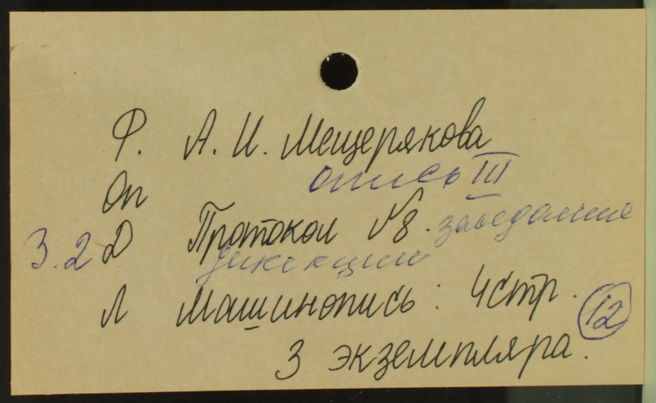 Ф. А. И. Мещерякова
Оп опись III
3.2 Д Протокол №8. заседание
дирекции
Л Машинопись: 4 стр.
12
3 экземпляра.